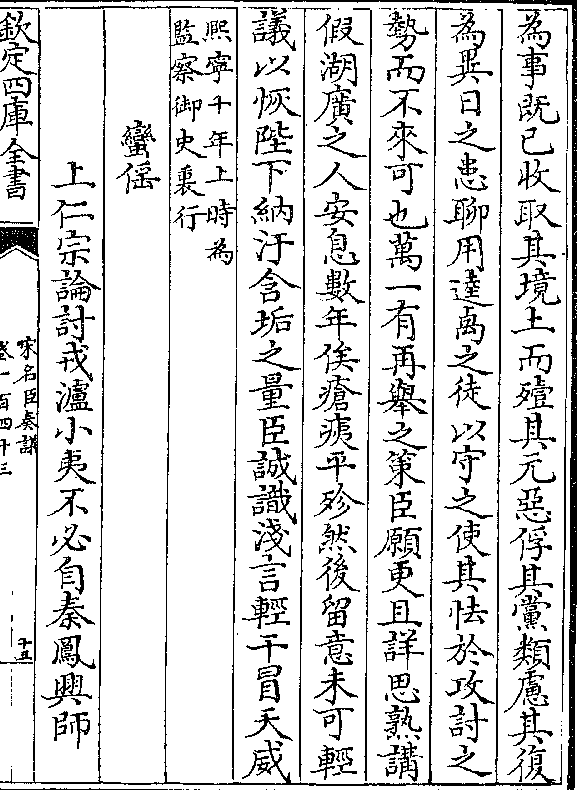 為事既已收取其境土而殪其元惡俘其黨類慮其復
為異日之患聊用達卨之徒以守之使其怯於攻討之
勢而不來可也萬一有再舉之策臣願更且詳思熟講
假湖廣之人安息數年俟瘡痍平殄然後留意未可輕
議以恢陛下納汙含垢之量臣誠識淺言輕干冒天威
熙寧十年上時為
監察御史裏行
蠻傜
上仁宗論討戎瀘小夷不必自秦鳳興師
欽定四庫全書
宋名臣奏議
卷一百四十三
十五